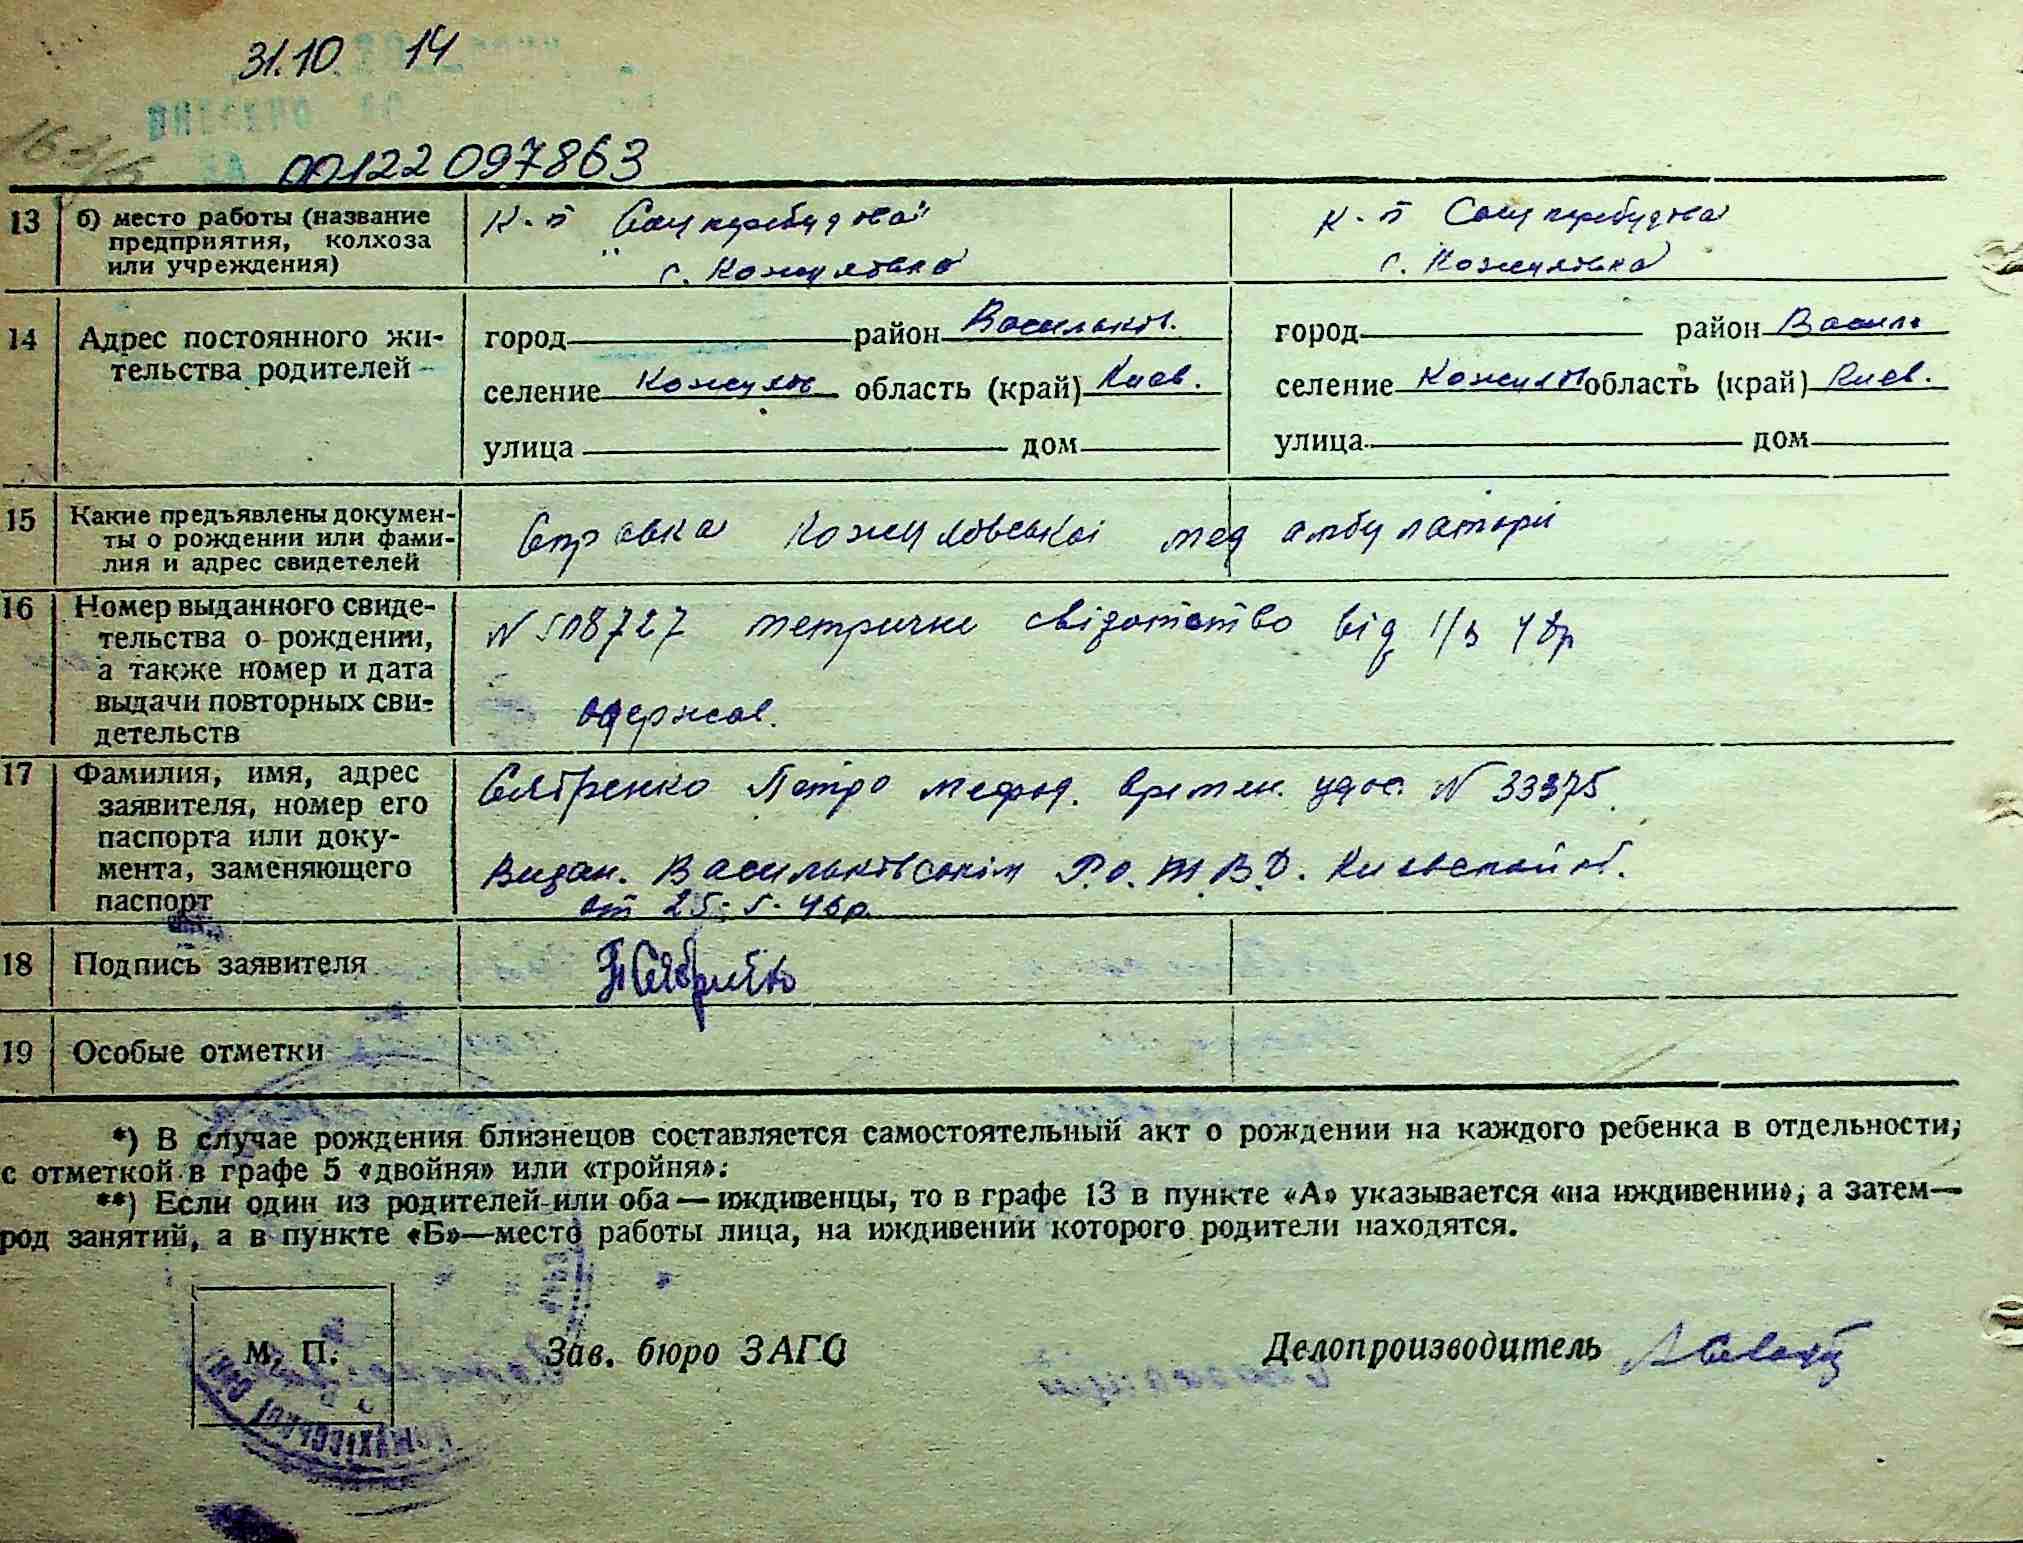 31.10 14
00122097863
13 б) место работы (название предприятия, колхоза или учреждения)
к-п Соцперебудова"
с. Кожуховка
к-п Соцперебудова
с. Кожуховка
14 Адрес постоянного жительства родителей
город район Васильков.
селение область (край) Киев.
улица дом
город район Васильк
селение область (край) Киев.
улица дом
15 Какие предъявлены докумен-
ты о рождении или фами-
лия и адрес свидетелей
Справка Кожуховської мед амбулаторії
16 Номер выданного свиде-
тельства о рождении,
а также номер и дата
выдачи повторных сви-
детельств
N 508727 метричне свідотство від
одержав.
17 Фамилия, имя, адрес
заявителя, номер его
паспорта или доку-
мента, заменяющего
паспорт
Сябренко Петро Мефод. времен. удос. N 33375.
Видан. Васильковським Р.О.М.В.Д. Киевской об.
от 25-5-46р.
18 Подпись заявителя
19 Особые отметки
*) В случае рождения близнецов составляется самостоятельный акт о рождении на каждого ребенка в отдельности,
с отметкой в графе 5 «двойня» или «тройня».
**) Если один из родителей или оба — иждивенцы, то в графе 13 в пункте «А» указывается «на иждивении», а затем—
род занятий, а в пункте «Б»—место работы лица, на иждивении которого родители находятся.
М. П.
Зав. бюро ЗАГС
Делопроизводитель